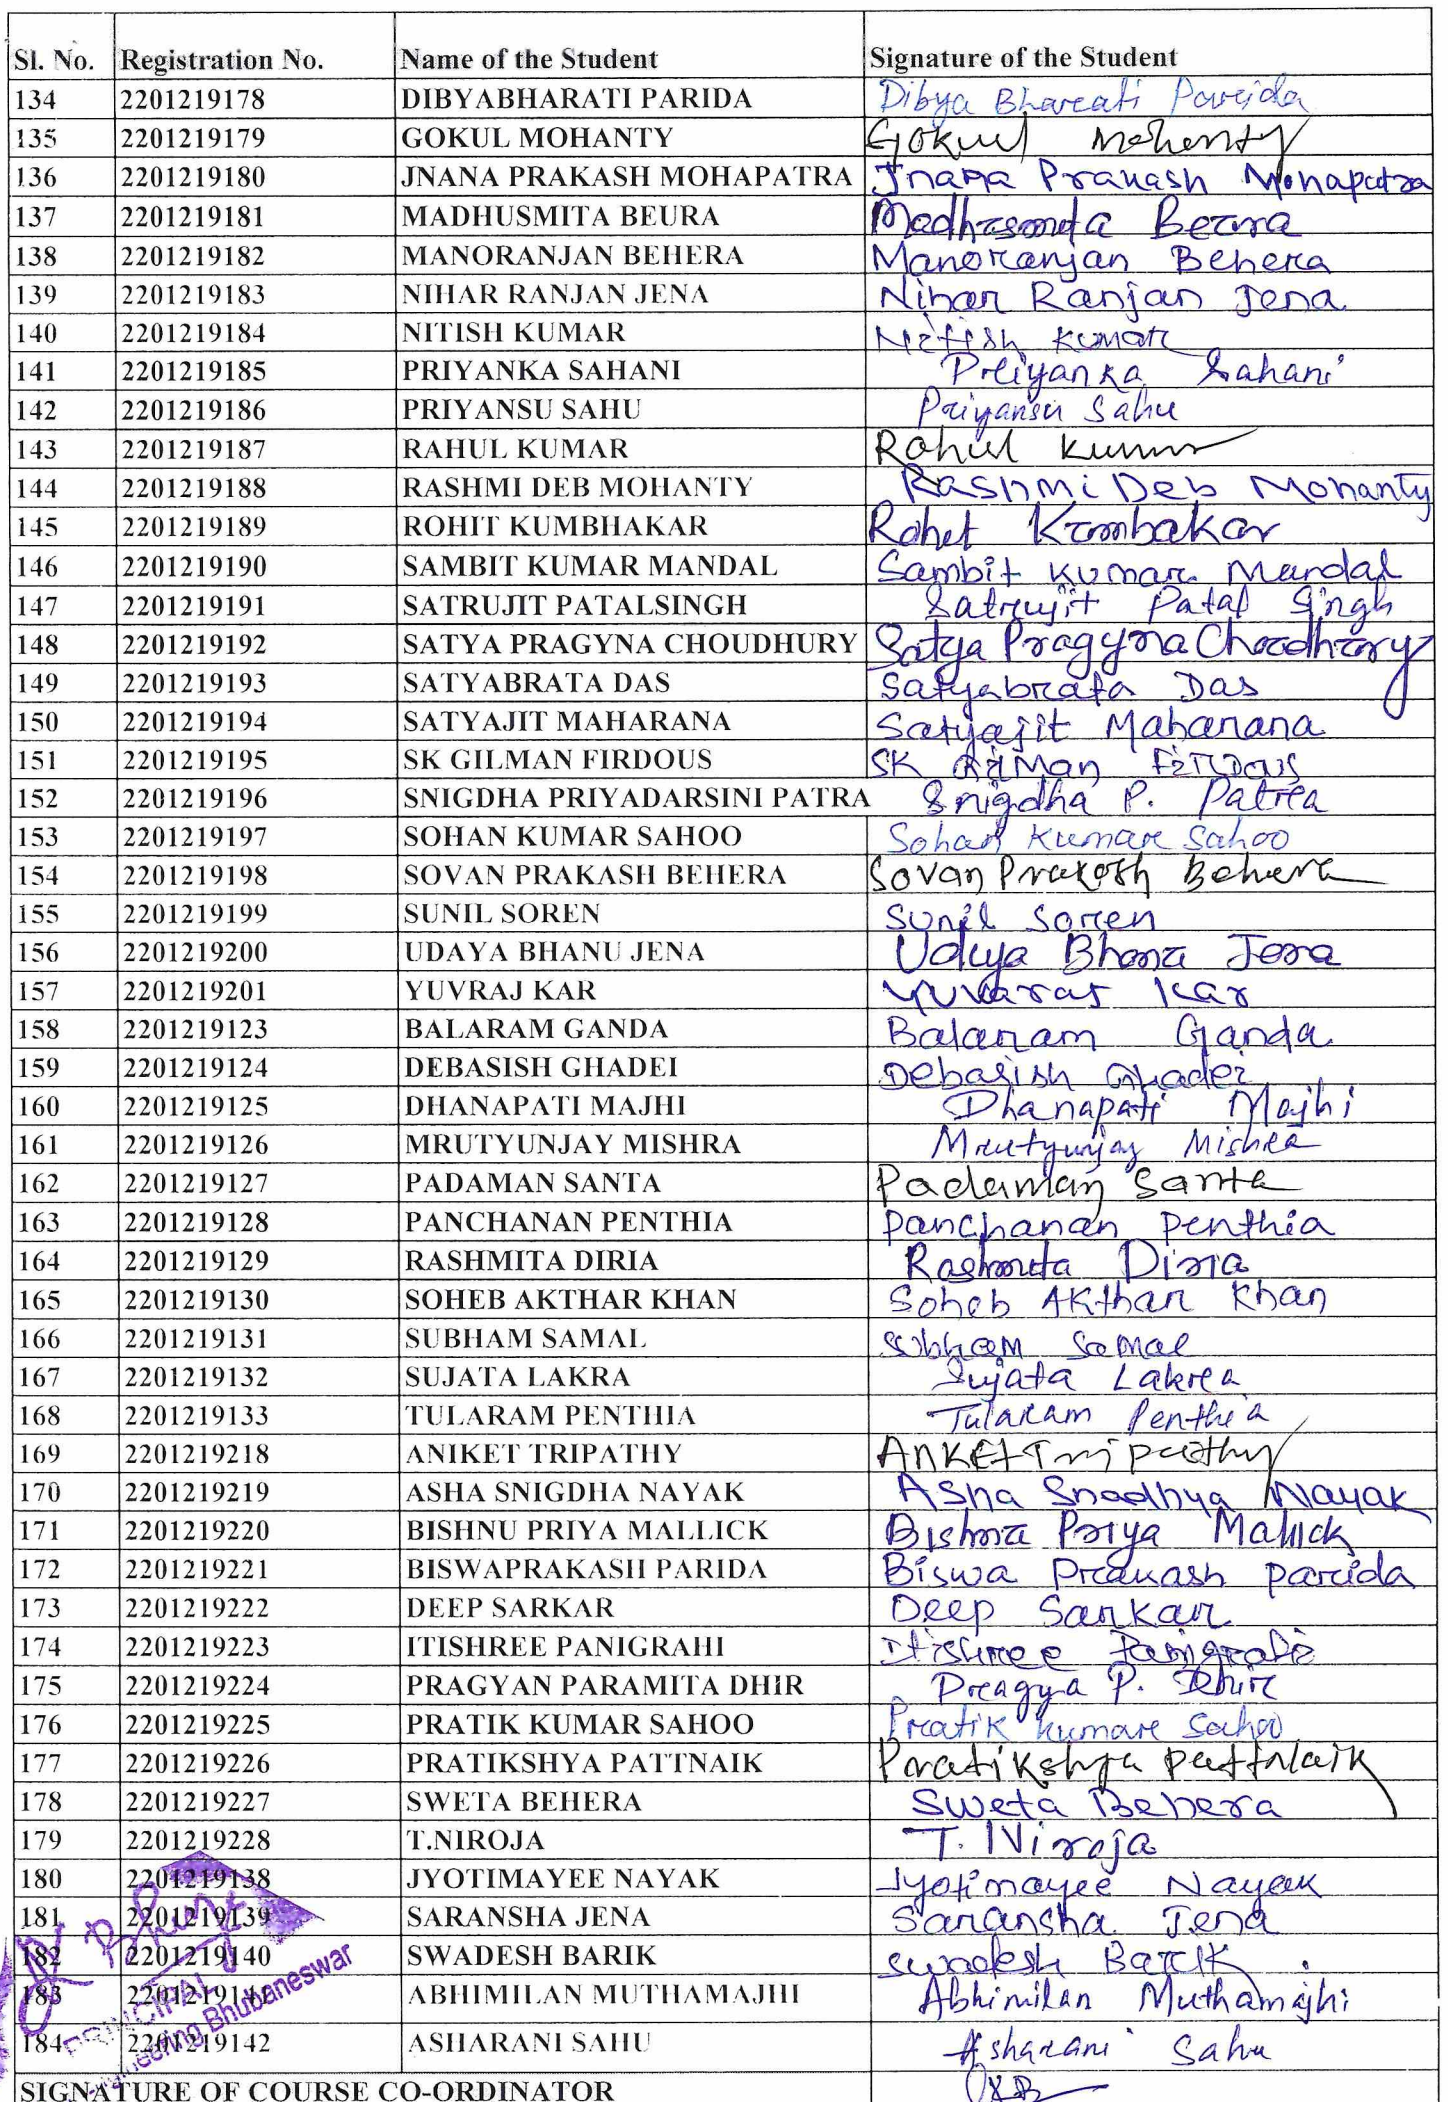 Sl. No. Registration No. Name of the Student Signature of the Student
134 2201219178 DIBYABHARATI PARIDA Dibya Bharati Parida
135 2201219179 GOKUL MOHANTY Gokul Mohanty
136 2201219180 JNANA PRAKASH MOHAPATRA Jnana Prakash Mohapatra
137 2201219181 MADHUSMITA BEURA Madhusmita Beura
138 2201219182 MANORANJAN BEHERA Manoranjan Behera
139 2201219183 NIHAR RANJAN JENA Nihar Ranjan Jena
140 2201219184 NITISH KUMAR Nitish Kumar
141 2201219185 PRIYANKA SAHANI Priyanka Sahani
142 2201219186 PRIYANSU SAHU Priyansu Sahu
143 2201219187 RAHUL KUMAR Rahul Kumar
144 2201219188 RASHMI DEB MOHANTY Rashmi Deb Mohanty
145 2201219189 ROHIT KUMBHAKAR Rohit Kumbakar
146 2201219190 SAMBIT KUMAR MANDAL Sambit Kumar Mandal
147 2201219191 SATRUJIT PATALSINGH Satrujit Patal Singh
148 2201219192 SATYA PRAGYNA CHOUDHURY Satya Pragyna Choudhury
149 2201219193 SATYABRATA DAS Satyabrata Das
150 2201219194 SATYAJIT MAHARANA Satyajit Maharana
151 2201219195 SK GILMAN FIRDOUS SK Firdous
152 2201219196 SNIGDHA PRIYADARSINI PATRA Snigdha P. Patra
153 2201219197 SOHAN KUMAR SAHOO Sohan Kumar Sahoo
154 2201219198 SOVAN PRAKASH BEHERA Sovan Prakash Behera
155 2201219199 SUNIL SOREN Sunil Soren
156 2201219200 UDAYA BHANU JENA Udaya Bhanu Jena
157 2201219201 YUVRAJ KAR Yuvaraj Kar
158 2201219123 BALARAM GANDA Balaram Ganda
159 2201219124 DEBASISH GHADEI Debasish Ghadei
160 2201219125 DHANAPATI MAJHI Dhanapati Majhi
161 2201219126 MRUTYUNJAY MISHRA Mrutyunjay Mishra
162 2201219127 PADAMAN SANTA Padaman Santa
163 2201219128 PANCHANAN PENTHIA Panchanan Penthia
164 2201219129 RASHMITA DIRIA Rashmita Diria
165 2201219130 SOHEB AKTHAR KHAN Soheb Akthar Khan
166 2201219131 SUBHAM SAMAL Subham Samal
167 2201219132 SUJATA LAKRA Sujata Lakra
168 2201219133 TULARAM PENTHIA Tularam Penthia
169 2201219218 ANIKET TRIPATHY ANKET Tripathy
170 2201219219 ASHA SNIGDHA NAYAK Asha Nayak
171 2201219220 BISHNU PRIYA MALLICK Bishnu Priya Mallick
172 2201219221 BISWAPRAKASH PARIDA Biswa Prakash Parida
173 2201219222 DEEP SARKAR Deep Sarkar
174 2201219223 ITISHREE PANIGRAHI Itishree Panigrahi
175 2201219224 PRAGYAN PARAMITA DHIR Pragya P. Dhir
176 2201219225 PRATIK KUMAR SAHOO Pratik Kumar Sahoo
177 2201219226 PRATIKSHYA PATTNAIK Pratikshya Pattnaik
178 2201219227 SWETA BEHERA Sweta Behera
179 2201219228 T.NIROJA T. Niroja
180 2201219138 JYOTIMAYEE NAYAK Jyotimayee Nayak
181 2201219139 SARANSHA JENA Saransha Jena
182 2201219140 SWADESH BARIK Swadesh Barik
183 2201219141 ABHIMILAN MUTHAMAJHI Abhimilan Muthamajhi
184 2201219142 ASHARANI SAHU Asharani Sahu
PRINCIPAL
Bhubaneswar
SIGNATURE OF COURSE CO-ORDINATOR